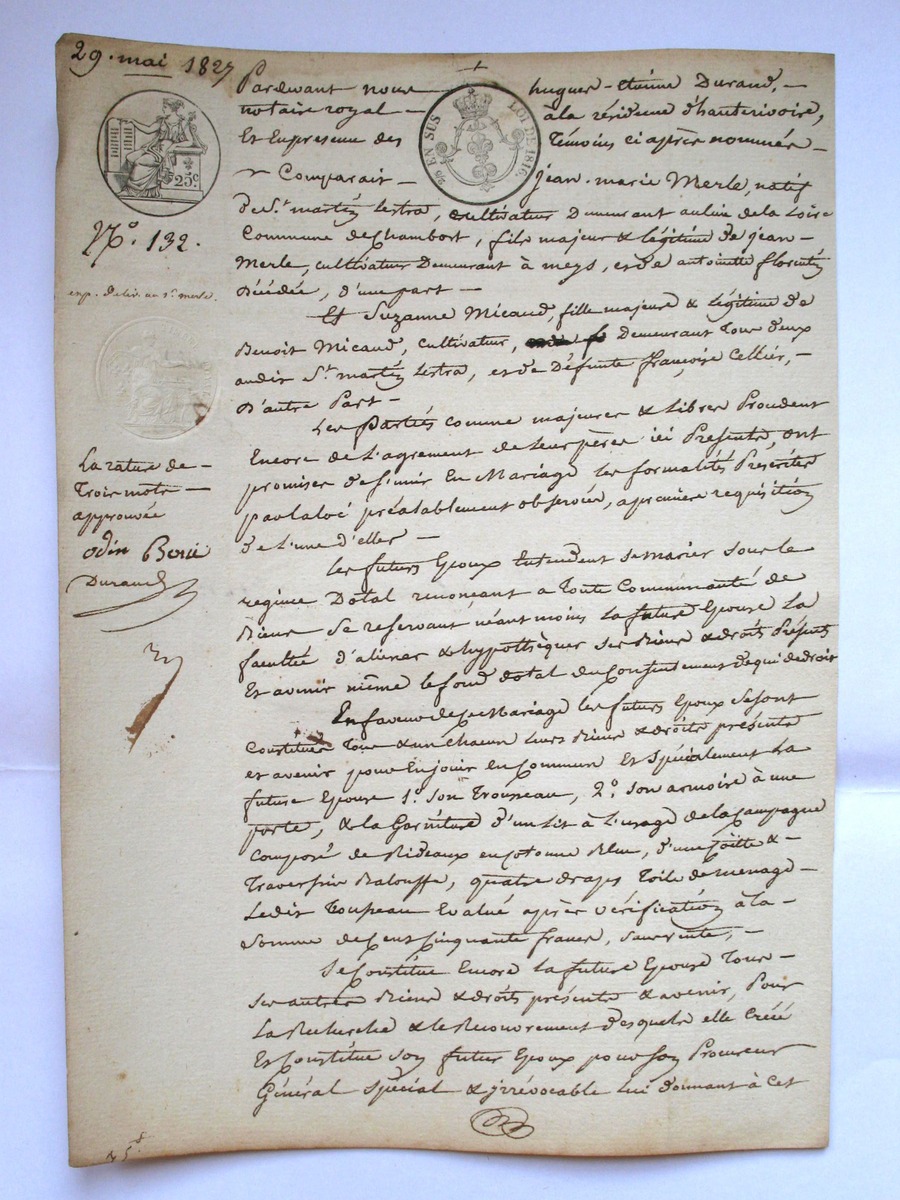 29. mai 1827
Pardevant nous hugues-étienne Durand,-
notaire royal - à la résidence d'hauterivoire,
Et En presence des Témoins ci après nommés-
25.c
EN SUS
LOI DE 1816.
Comparait - jean-marie Merle, natif
de St. martin Lestra, cultivateur Demeurant au lieu de la Loire
Commune de Chambost, fils majeur & légitime de jean-
Merle, cultivateur Demeurant à meys, et de antoinette florentin
Décédée, d'une part -
N.o 132.
exp. deliv. au sr. merle.
Et Suzanne Micaud, fille majeure & Légitime de
Benoit Micaud, cultivateur, Demeurant Tous deux
audit St. martin Lestra, et de Défunte françoise Cellier,-
D'autre Part -
Les Parties comme majeures & Libres Procedent
Encore de L'agrement de Leurs pères ici Presents, ont
promises de s'unir En Mariage les formalités Prescrites
par la loi préalablement observées, a premiere requisition
de L'une d'elles -
La rature de -
Trois mots -
approuvée
odin
Durand
Les futurs Epoux Entendent se marier sous le
regime Dotal renonçant a Toute Communauté de
Biens se reservant néant moins La future Epouse La
faculté d'aliener & hypothèquer ses Biens & droits Présents
Et avenir même le fond dotal du Consentement de qui de droit
En faveur de Ce Mariage les futurs Epoux se sont
Constitués Tous & un chacun Leurs Biens & droits présents
et avenir pour En jouir en Commun Et Spécialement La
future Epouse 1.o son Trousseau, 2.o son armoire à une
porte, & la Garniture d'un Lit à L'usage de la Campagne
Composé de Rideaux en Cotonne Bleu, d'une Coëtte & -
Traversin Balouffe, quatre draps Toile de menage -
Ledit Trousseau Evalué après vérification à la -
Somme de Cent Cinquante francs, sans vente,-
Se Constitue Encore La future Epouse Tous -
ses autres Biens & droits présents & avenir, Pour
La Recherche & le Recouvrement desquels elle Créé
Et Constitue son futur Epoux pour son Procureur
Général spécial & irrévocable Lui donnant à Cet